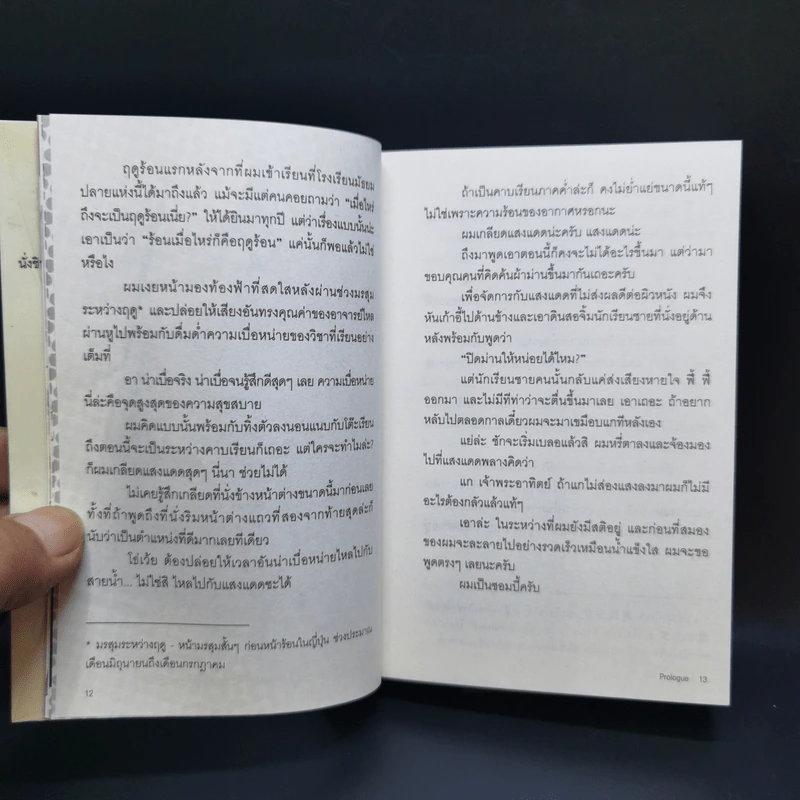 ฤดูร้อนแรกหลังจากที่ผมเข้าเรียนที่โรงเรียนมัธยม
ปลายแห่งนี้ได้มาถึงแล้ว แม้จะมีแต่คนคอยถามว่า “เมื่อไหร่
ถึงจะเป็นฤดูร้อนเนี่ย?” ให้ได้ยินมาทุกปี แต่ว่าเรื่องแบบนั้นน่ะ
เอาเป็นว่า “ร้อนเมื่อไหร่ก็คือฤดูร้อน” แค่นั้นก็พอแล้วไม่ใช่
หรือไง
ผมเงยหน้ามองท้องฟ้าที่สดใสหลังผ่านช่วงมรสุม
ระหว่างฤดู* และปล่อยให้เสียงอันทรงคุณค่าของอาจารย์ไหล
ผ่านหูไปพร้อมกับดื่มด่ำความเบื่อหน่ายของวิชาที่เรียนอย่าง
เต็มที่
อา น่าเบื่อจริง น่าเบื่อจนรู้สึกดีสุดๆ เลย ความเบื่อหน่าย
นี่ล่ะคือจุดสูงสุดของความสุขสบาย
ผมคิดแบบนั้นพร้อมกับทิ้งตัวลงนอนแนบกับโต๊ะเรียน
ถึงตอนนี้จะเป็นระหว่างคาบเรียนก็เถอะ แต่ใครจะทำไมล่ะ?
ก็ผมเกลียดแสงแดดสุดๆ นี่นา ช่วยไม่ได้
ไม่เคยรู้สึกเกลียดที่นั่งข้างหน้าต่างขนาดนี้มาก่อนเลย
ทั้งที่ถ้าพูดถึงที่นั่งริมหน้าต่างแถวที่สองจากท้ายสุดล่ะก็
นับว่าเป็นตำแหน่งที่ดีมากเลยทีเดียว
โธ่เว้ย ต้องปล่อยให้เวลาอันน่าเบื่อหน่ายไหลไปกับ
สายน้ำ... ไม่ใช่สิ ไหลไปกับแสงแดดซะได้
* มรสุมระหว่างฤดู - หน้ามรสุมสั้นๆ ก่อนหน้าร้อนในญี่ปุ่น ช่วงประมาณ
เดือนมิถุนายนถึงเดือนกรกฎาคม
12
ถ้าเป็นคาบเรียนภาคค่ำล่ะก็ คงไม่ย่ำแย่ขนาดนี้แท้ๆ
ไม่ใช่เพราะความร้อนของอากาศหรอกนะ
ผมเกลียดแสงแดดน่ะครับ แสงแดดน่ะ
ถึงมาพูดเอาตอนนี้ก็คงจะไม่ได้อะไรขึ้นมา แต่ว่ามา
ขอบคุณคนที่คิดค้นผ้าม่านขึ้นมากันเถอะครับ
เพื่อจัดการกับแสงแดดที่ไม่ส่งผลดีต่อผิวหนัง ผมจึง
หันเก้าอี้ไปด้านข้าง และเอาดินสอจิ้มนักเรียนชายที่นั่งอยู่ด้าน
หลังพร้อมกับพูดว่า
“ปิดม่านให้หน่อยได้ไหม?”
แต่นักเรียนชายคนนั้นกลับแค่ส่งเสียงหายใจ ฟี้ ฟี้
ออกมา และไม่มีทีท่าว่าจะตื่นขึ้นมาเลย เอาเถอะ ถ้าอยาก
หลับไปตลอดกาลเดี๋ยวผมจะมาเขมือบแกทีหลังเอง
แย่ล่ะ ชักจะเริ่มเบลอแล้วสิ ผมหรี่ตาลงและจ้องมอง
ไปที่แสงแดดพลางคิดว่า
แก เจ้าพระอาทิตย์ ถ้าแกไม่ส่องแสงลงมาผมก็ไม่มี
อะไรต้องกลัวแล้วแท้ๆ
เอาล่ะ ในระหว่างที่ผมยังมีสติอยู่ และก่อนที่สมอง
ของผมจะละลายไปอย่างรวดเร็วเหมือนน้ำแข็งใส ผมจะขอ
พูดตรงๆ เลยนะครับ
ผมเป็นซอมบี้ครับ
Prologue 13